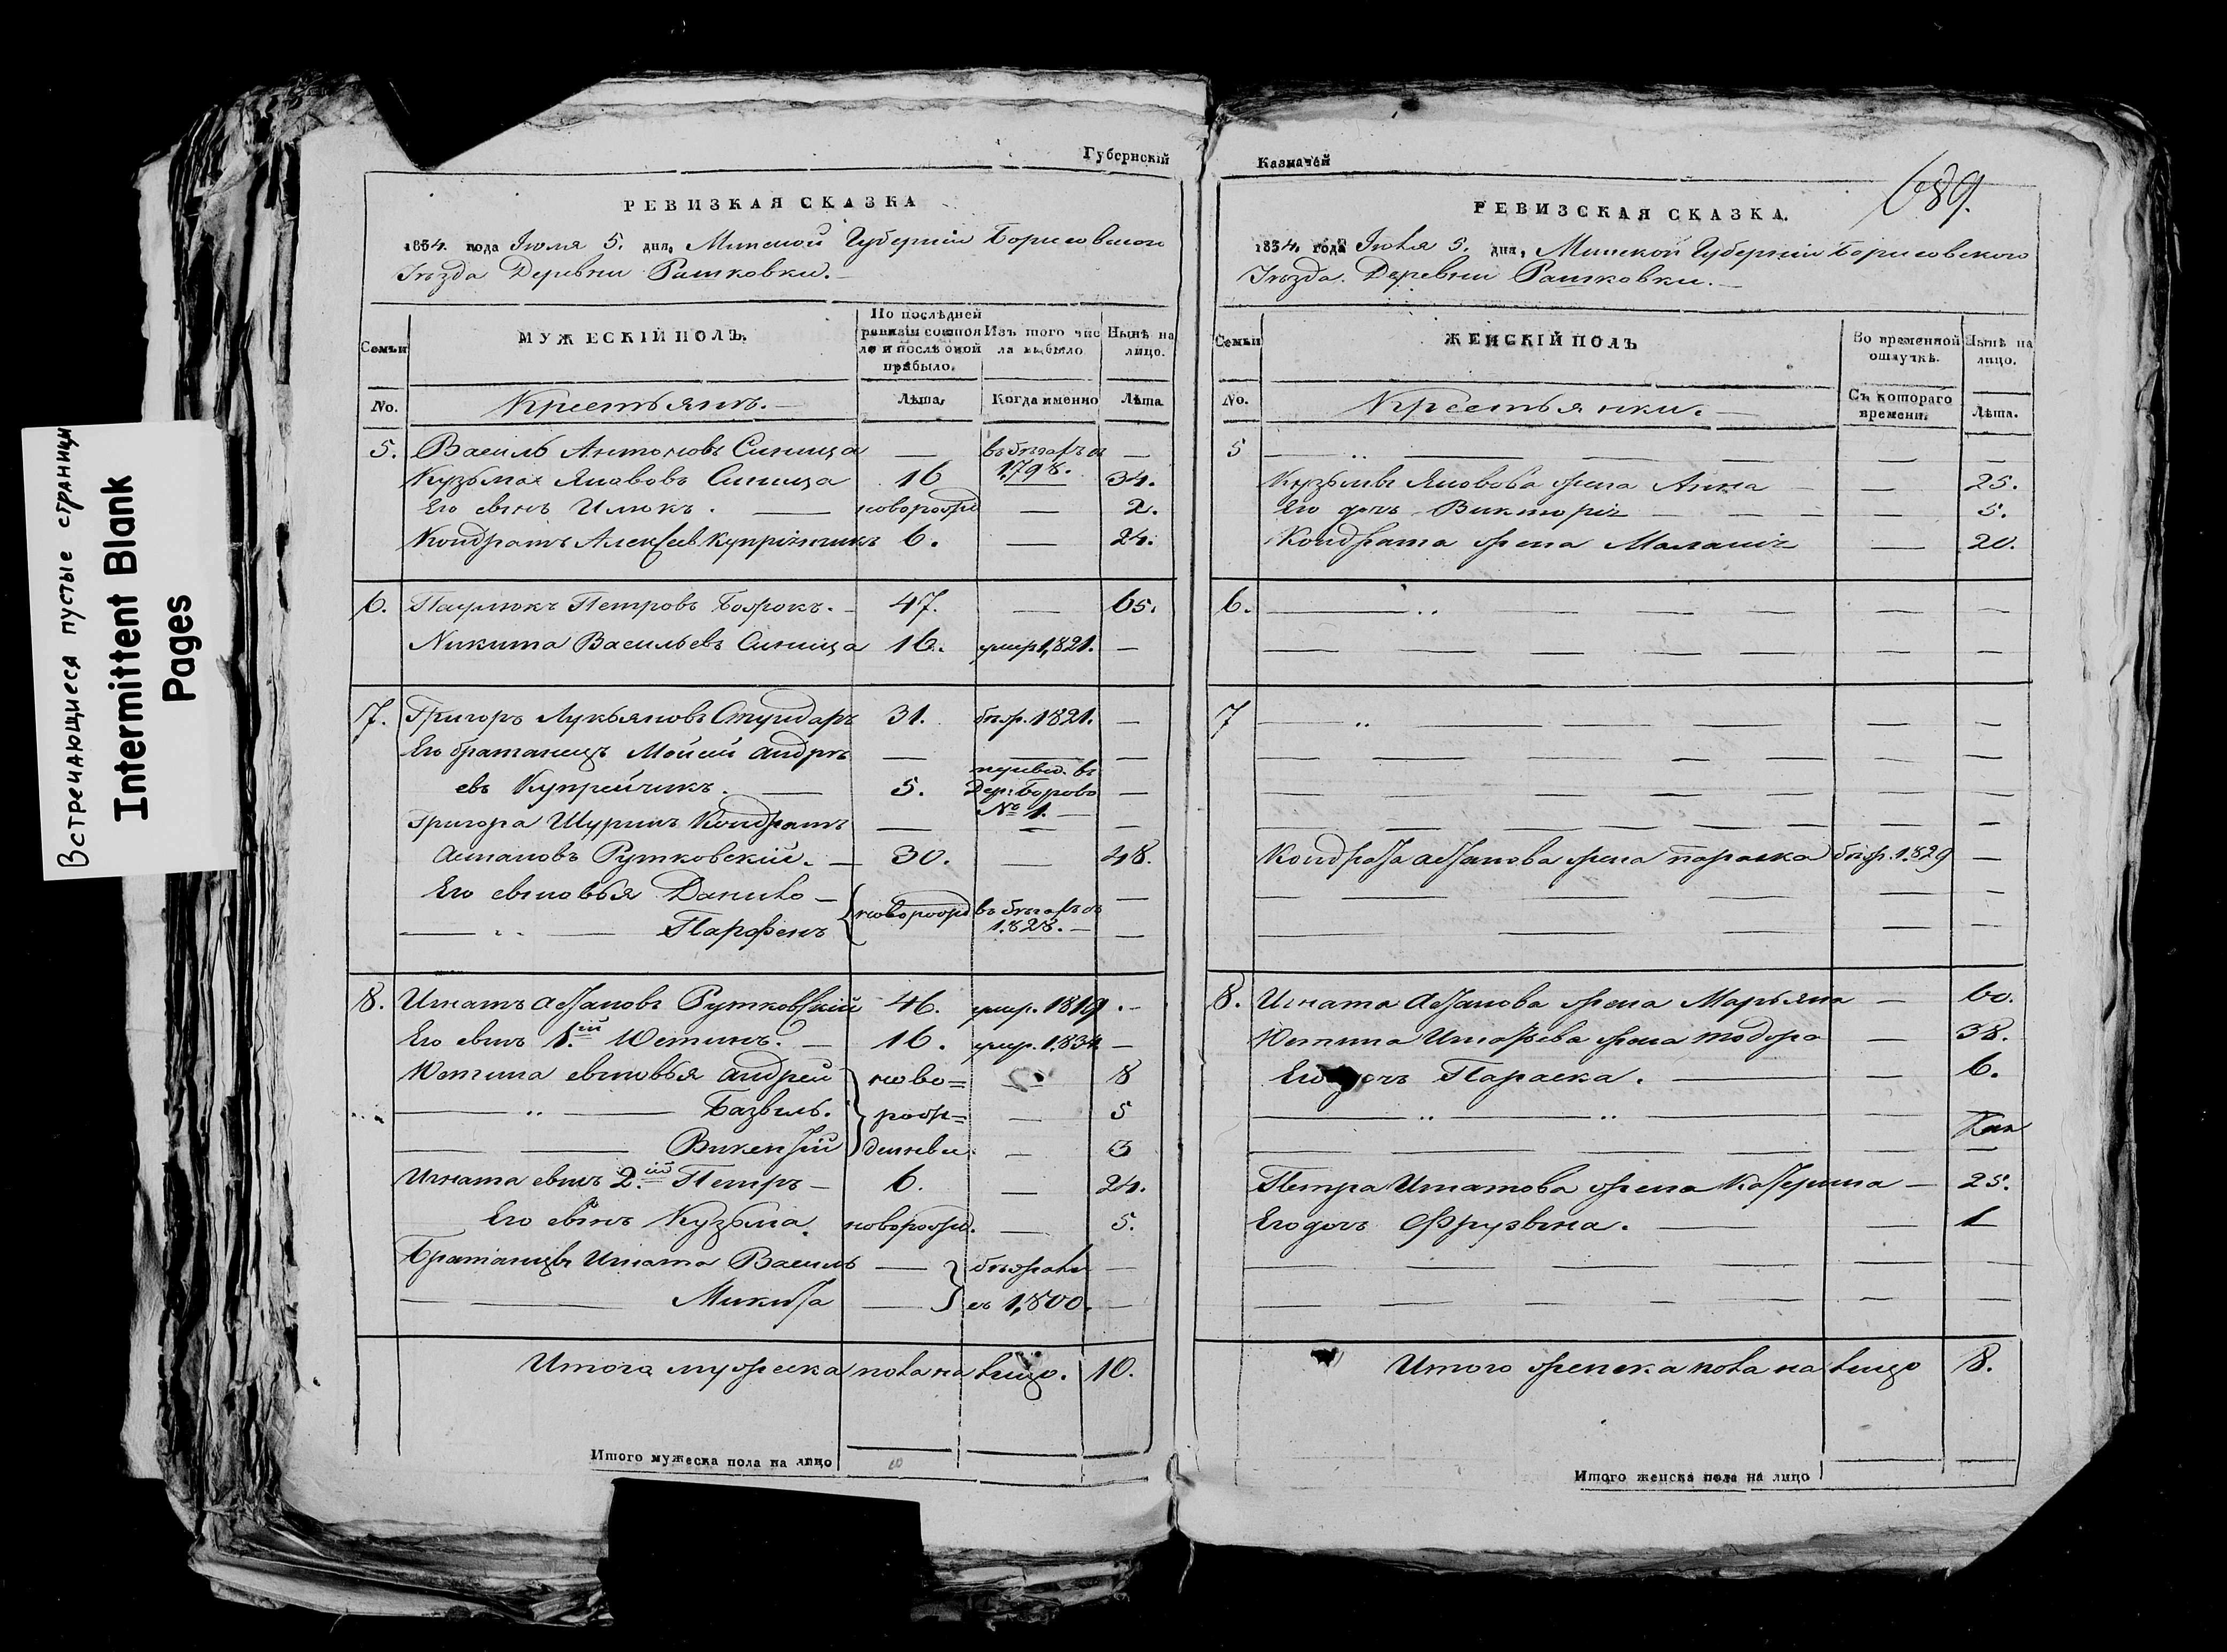 Встречающиеся пустые страницы
Intermittent Blank
Pages
Губернскій
РЕВИЗКАЯ СКАЗКА
1834. года Іюля 5. дня, Минской Губерніи Борисовского
Уѣзда Деревни Рашковки.
Семьи
МУЖЕСКІЙ ПОЛЪ.
По послѣдней ревизіи состояло и послѣ оной прибыло.
Изъ того числа выбыло
Нынѣ на лицо.
No.
Крестьянъ.
Лѣта,
Когда именно
Лѣта
5. Василь Антоновъ Синица — въ бѣгахъ съ 1798. —
Кузьма Яновъ Синица 16 — 34.
Его сынъ Илюкъ. — новорожд — 2.
Кондратъ Алексѣев Купрѣйчикъ 6. — 24.
6. Паулюкъ Петровъ 47. — 65.
Никита Васильевъ Синица 16. умер 1,821. —
7. Григоръ Лукьяновъ Стундаръ 31. бѣж. 1821. —
Его братанецъ Мойсѣй Андрѣ — — —
евъ Купрейчикъ. — 5. перевед. въ Дер: Борово № 1. —
Григора Шуринъ Кондратъ — — —
Астаповъ Рутковскій. — 30. — 48.
Его сыновья Данило — новорожд въ бѣгахъ съ 1.828. —
— „ — Парфенъ —
8. Игнатъ Астаповъ Рутковскій 46. умер. 1819. —
Его сынъ 1.ій Юстинъ. — 16. умер. 1.834. —
Юстина сыновья Андрей ново= — 8
— „ — Базыль. рож= — 5
— — Викентій денные. — 3
Игната сынъ 2.ій Петръ — 6. — 24.
Его сынъ Кузьма. новорожд. — 5.
Братанцы Игната Василь — бѣжали —
— Микита — съ 1,800. —
Итого мужеска пола на лицо. 10.
Итого мужеска пола на лицо 10
Казначей
689.
РЕВИЗСКАЯ СКАЗКА.
1834. года Іюля 5. дня, Минской Губерніи Борисовского
Уѣзда. Деревни Рашковки. —
Семьи
ЖЕНСКІЙ ПОЛЪ
Во временной отлучкѣ.
Нынѣ на лицо.
No.
Крестьянки.
Съ котораго времени.
Лѣта.
5 — „ — — — — —
Кузьмы Яновова жена Анна — — 25.
Его дочь Викторія — — — — 5.
Кондрата жена Маланія — 20.
6. — „ — — — — —
— — — — — — —
7 — „ — — — — —
— — — — — — —
— — — — — — —
— — — — — — —
Кондрата Астапова жена Параска бѣж. 1.829 —
— — — — —
— — — — —
8. Игната Астапова жена Марьяна — 60.
Юстина Игнатьева жена Тодора — 38.
Его дочь Параска. — — 6.
— „ — „ — —
— — — — —
Петра Игнатова жена Катерина — — 25.
Его дочь Фрузына. — — 1
— — — — — —
— — — — — —
Итого женска пола на лицо 8.
Итого женска пола на лицо